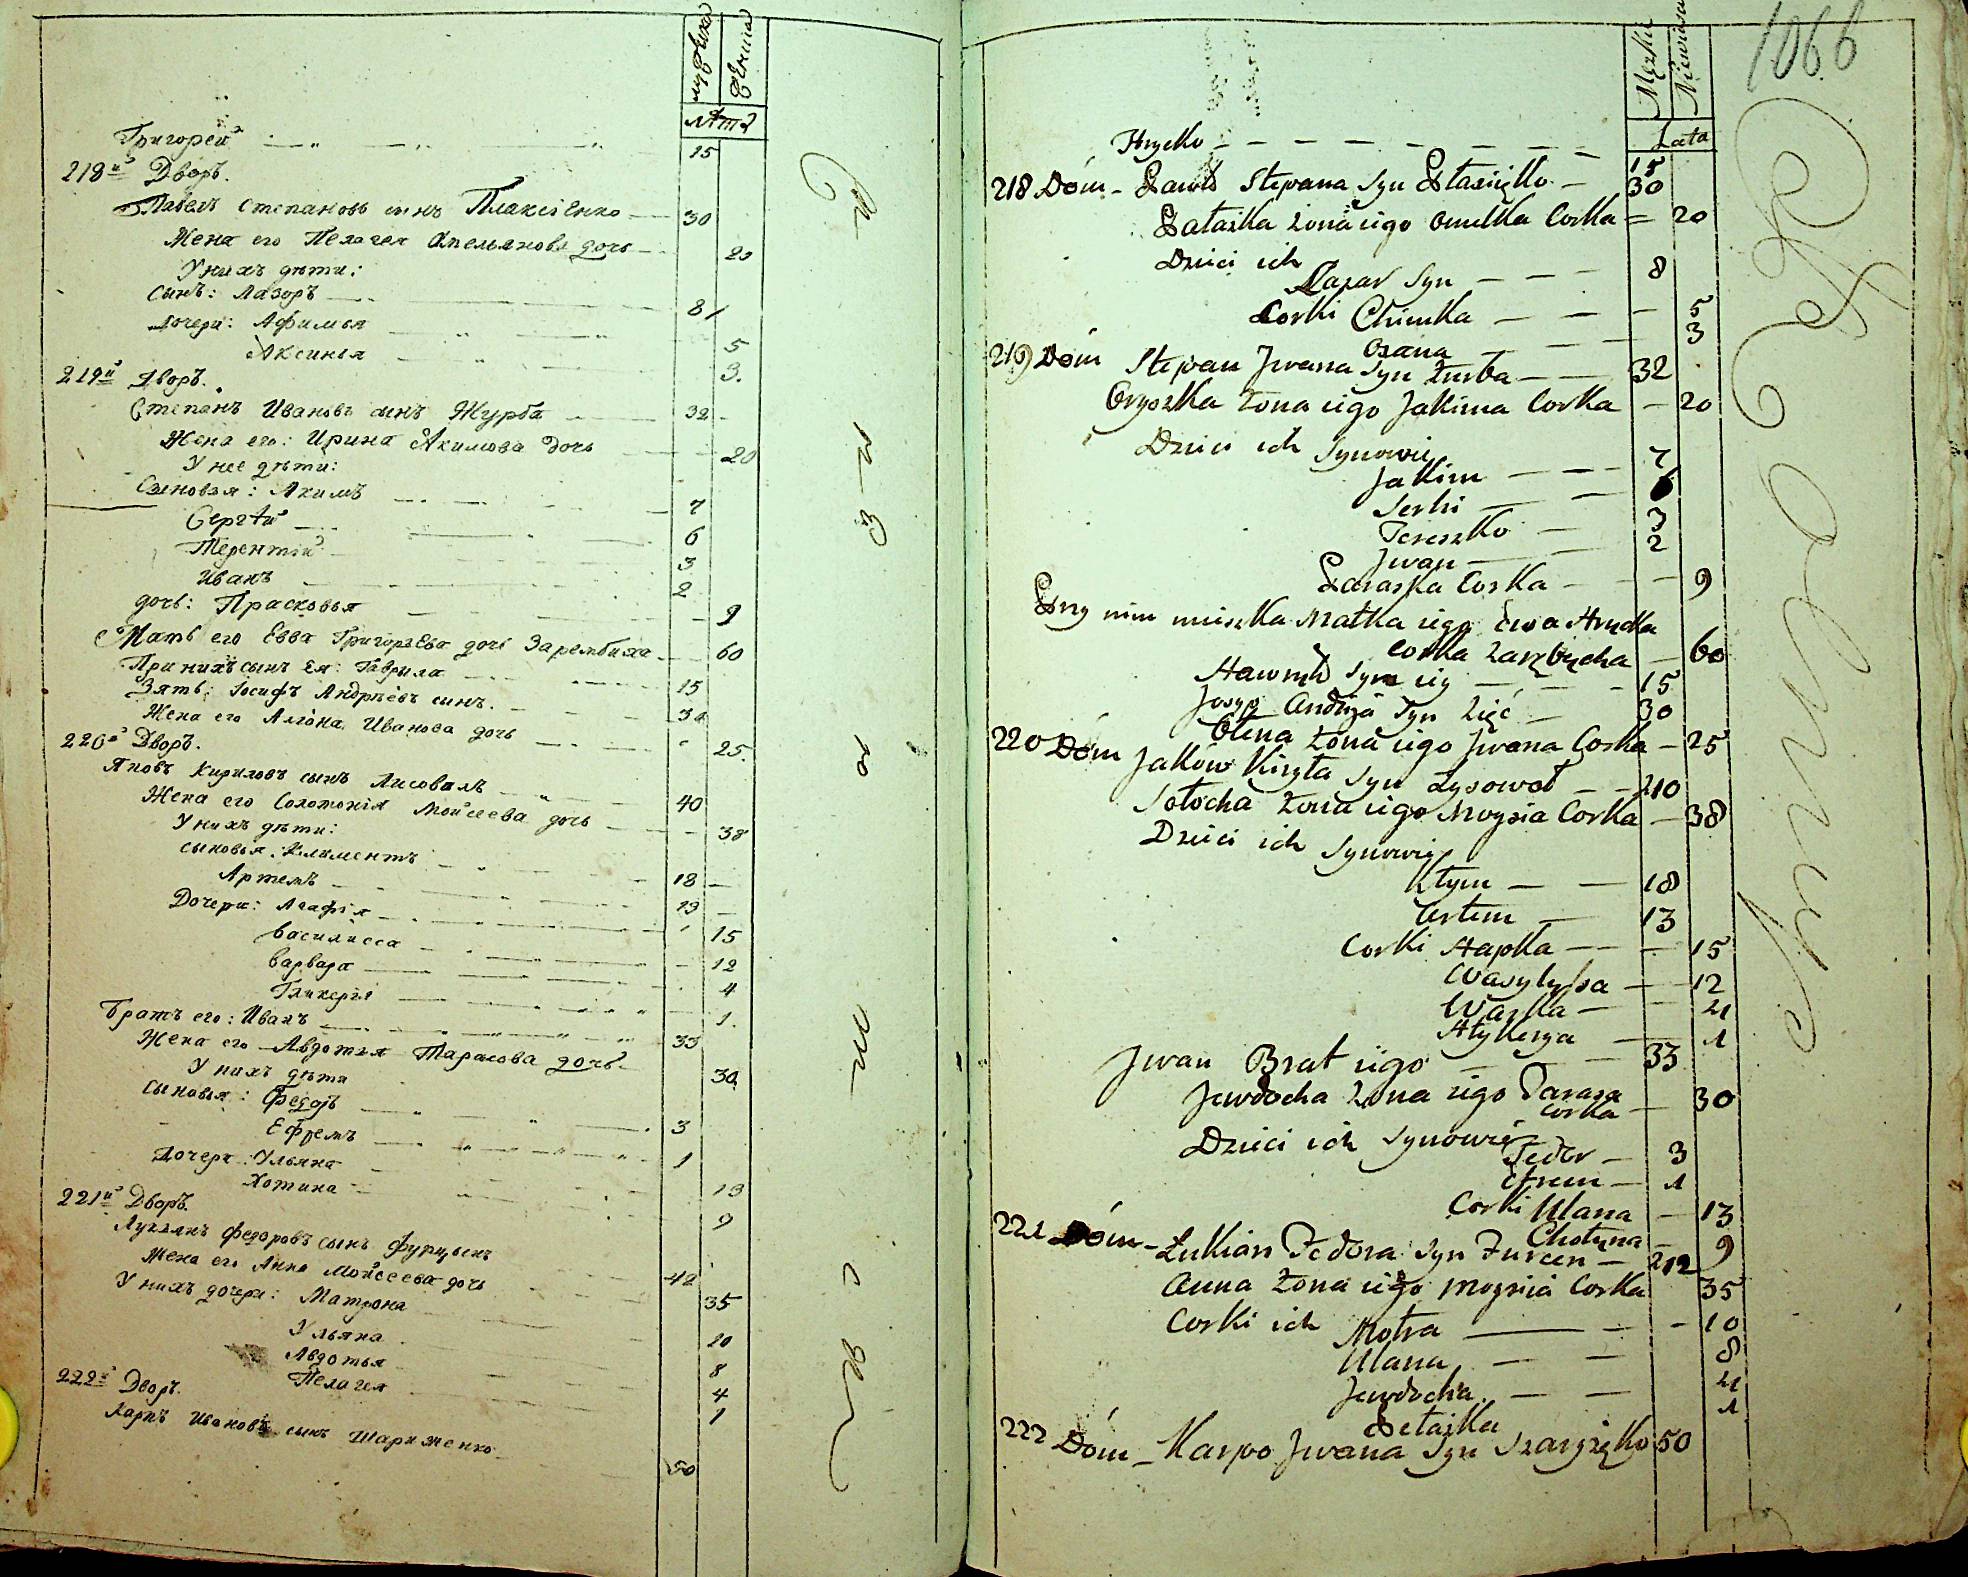 мужска
женска
лѣта
Григорей 15
218й Дворъ.
Павелъ Степановъ сынъ Плаксіенко 30
Жена его Пелагея Емельянова дочь 20
У нихъ дѣти:
Сынъ: Лазоръ 8
Дочери: Афимья 5
Аксинья 3.
219й Дворъ.
Степанъ Ивановъ сынъ Журба 32
Жена его: Ирина Акимова дочь 20
У нее дѣти:
Сыновья: Акимъ 7
Сергѣй 6
Терентій 3
Иванъ 2
дочь: Прасковья 9
Мать его Евва Григорьева дочь Зарембиха 60
При нихъ сынъ ея: Гаврила 15
Зять: Іосифъ Андрѣевъ сынъ. 30
Жена его Алгона Иванова дочь 25.
220й Дворъ.
Яковъ Кириловъ сынъ Лисовалъ 40
Жена его Соломонія Мойсеева дочь 38
У нихъ дѣти:
сыновья: Климентъ 18
Артемъ 13
Дочери: Агафія 15
Василисса 12
Варвара 4
Гликерія 1.
Братъ его: Иванъ 33
Жена его Авдотья Тарасова дочь. 30
У нихъ дѣти
сыновья: Федоръ 3
Ефремъ 1
Дочери: Ульяна 13
Хотина 9
221й Дворъ.
Лукьянъ Федоровъ сынъ Фурцынъ 42
Жена его Анна Мойсеева дочь 35
У нихъ дочери: Матрона 10
Ульяна 8
Авдотья 4
Пелагея 1
222й Дворъ.
Карпъ Ивановъ сынъ Шариженко 50
1066
Męzkie
Niewieście
Lata
Hrycko 15
218 Dóm - Pawło Stepana Syn Płaxięko 30
Pałażka żona iego Omelka Corka 20
Dzieci ich
Łazar Syn 8
Corki Chimka 5
Oxana 3
219 Dóm Stepan Jwana Syn Żurba 32
Oryszka żona iego Jakima Corka 20
Dzieci ich Synowie
Jakim 7
Serhi 6
Tereszko 3
Jwan 2
Paraska Corka 9
Przy nim mieszka Matka iego Ewa Hrycka
Corka Zarębicha 60
Hawryło Syn iey 15
Josyp Andrija Syn Zięć 30
Ołena żona iego Jwana Corka 25
220 Dóm Jaków Kiryła Syn Łysowoł 40
Sołocha żona iego Moysia Corka 38
Dzieci ich Synowie
Kłym 18
Artem 13
Corki Hapka 15
Wasylyssa 12
Warka 4
Hłykerya 1
Jwan Brat iego 33
Jewdocha żona iego Tarasa
Corka 30
Dzieci ich Synowie
Fedor 3
Efrem 1
Corki Ulana 13
Chotyna 9
221 Dóm - Łukian Fedora Syn Furcen 42
Anna żona iego Moysia Corka 35
Corki ich Motra 10
Ulana 8
Jewdocha 4
Pełażka 1
222 Dóm - Karpo Jwana Syn Szaryżęko 50